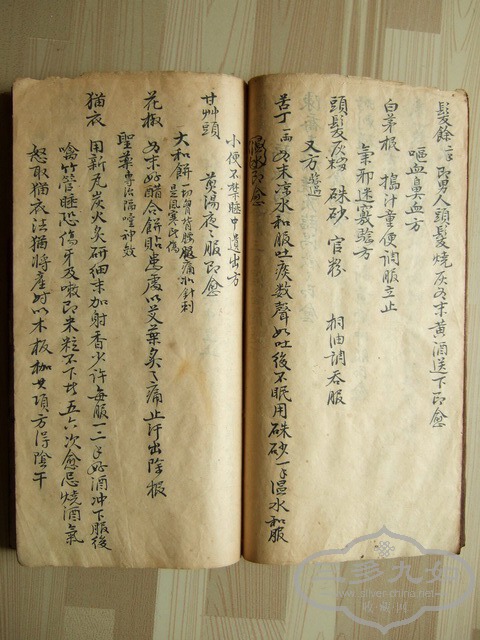 髮餘 即男人頭髮燒灰為末黃酒送下即愈
嘔血鼻血方
白茅根 搗汁童便調服立止
氣邪迷竅驗方
頭髮灰 硃砂 官粉 桐油調吞服
又方
苦丁 為末凉水和服吐痰数聲如吐後不眠用硃砂一仝温水和服
即愈
小便不禁睡中遺出方
甘艸頭 煎湯夜夜服即愈
大和餅 一切骨背腰腿痛
是風寒
花椒 為末好醋合餅貼患處以艾葉灸之痛止汗出除根
聖藥專治隔噎神效
猫衣 用新瓦炭火炙研細末加射香少許每服一二 好酒冲下服後
噙竹管睡恐傷牙及 即米粒不下 五六次愈忌燒酒氣
怒取猫衣法猫將產时以木板枷其項方得陰干
三多九如
www.silver-china.net